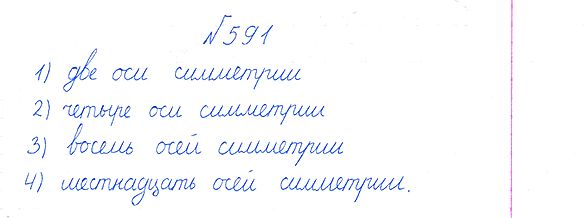 №591
1) две оси симметрии
2) четыре оси симметрии
3) восемь осей симметрии
4) шестнадцать осей симметрии.